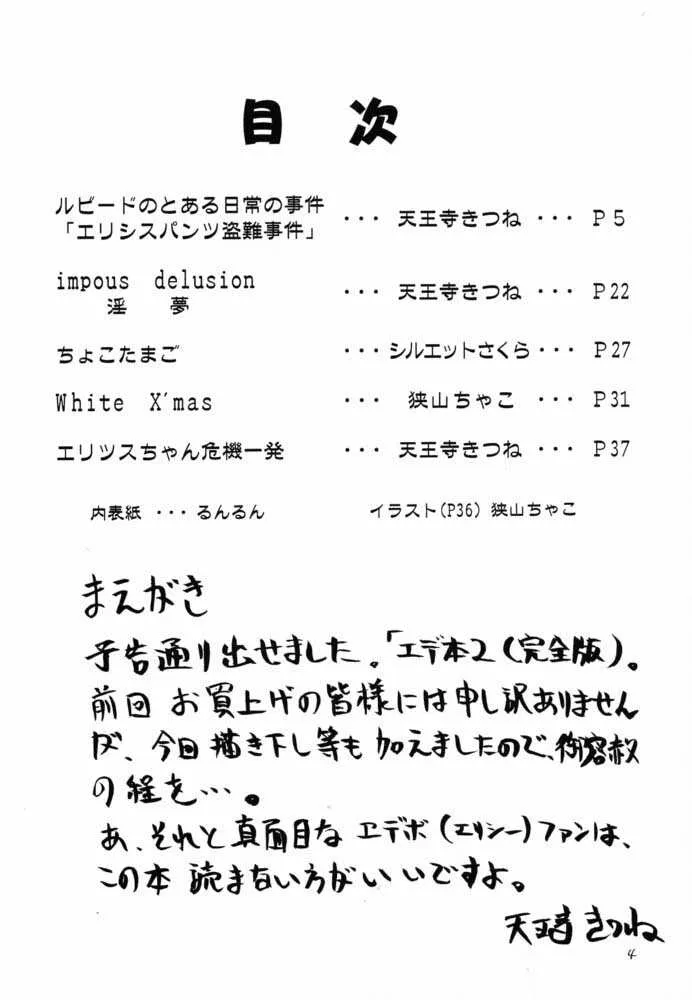 目 次
ルビードのとある日常の事件
「エリシスパンツ盗難事件」 ・・・ 天王寺きつね ・・・ P5
impous delusion
淫 夢 ・・・ 天王寺きつね ・・・ P22
ちょこたまご ・・・シルエットさくら・・・ P27
White X'mas ・・・ 狭山ちゃこ ・・・ P31
エリツスちゃん危機一発 ・・・ 天王寺きつね ・・・ P37
内表紙 ・・・ るんるん イラスト(P36) 狭山ちゃこ
まえがき
予告通り出せました。「エデ本2(完全版)。
前回 お買上げの皆様には申し訳ありません
が、今回描き下し等も加えましたので、御容赦
の程を…。
あ、それと真面目な エデボ(エリシー)ファンは、
この本 読まない方がいいですよ。
天王寺きつね
4